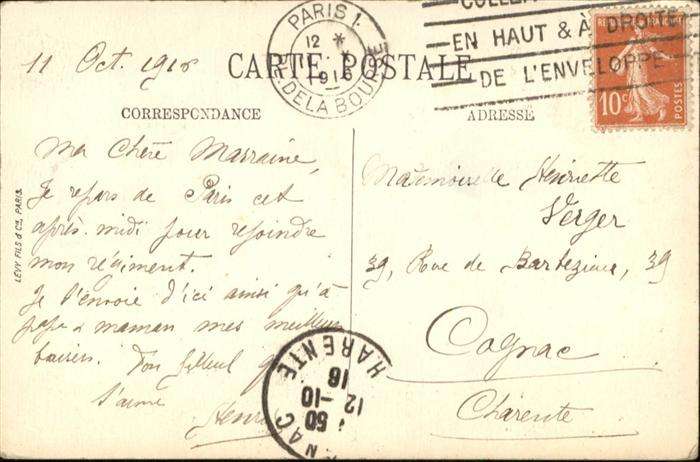 PARIS 1.
12 *
1916
R. DE LA BOURSE
COLLER
EN HAUT & À DROITE
DE L'ENVELOPPE
REPUBLIQUE FRANÇAISE
10c
POSTES
11 Oct. 1916
CARTE POSTALE
CORRESPONDANCE
ADRESSE
Ma Chère Marraine,
Je repars de Paris cet
après-midi pour rejoindre
mon régiment.
Je t'envoie d'ici ainsi qu'à
papa & maman mes meilleurs
baisers. Ton filleul qui
t'aime
Henri
Mademoiselle Henriette
Verger
39, Rue de Barbezieux, 39
Cognac
Charente
LEVY FILS & Cie, PARIS
NAC HARENTE
50
12-10
16